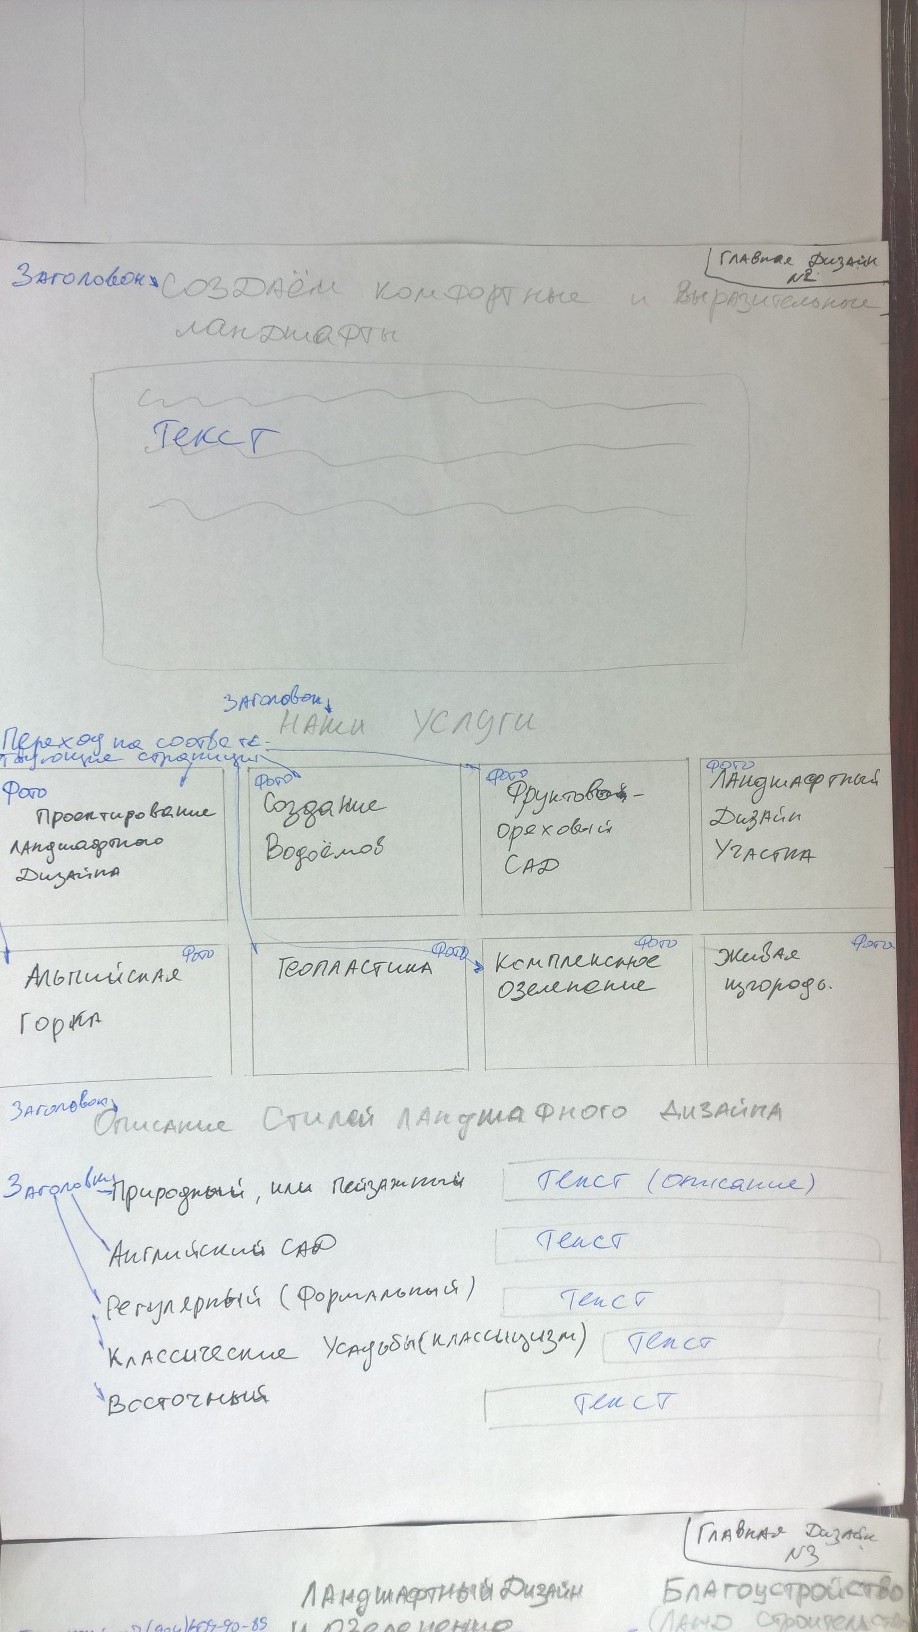 Главная Дизайн
№2
Заголовок
Создаём комфортные и выразительные
ландшафты
Текст
Заголовок
Наши услуги
Переход на соответс-
твующие страницы
Фото
Проектирование
ландшафтного
Дизайна
Фото
Создание
Водоёмов
Фото
Фруктово-
ореховый
САД
Фото
Ландшафтный
Дизайн
Участка
Фото
Альпийская
Горка
Фото
Геопластика
Фото
Комплексное
озеленение
Фото
Живая
изгородь.
Заголовок
Описание Стилей ландшафного дизайна
Заголовки
Природный, или пейзажный
Текст (описание)
Английский САД
Текст
Регулярный (Формальный)
Текст
Классические Усадьбы (классицизм)
Текст
Восточный
Текст
Главная Дизайн
№3
Ландшафтный Дизайн
и Озеленение
Благоустройство